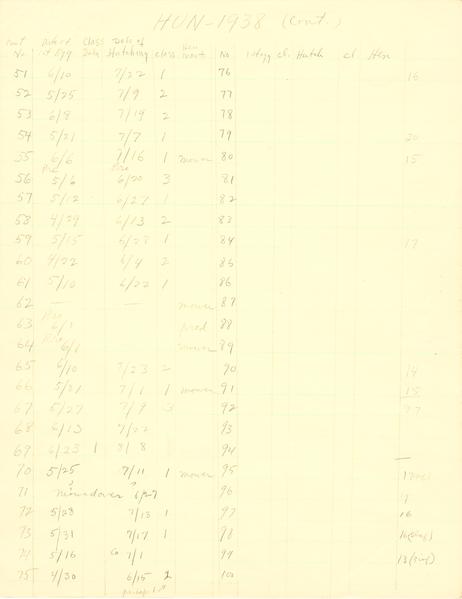 HUN-1938 (Cont.)
Nest No Date of 1st Egg Class Date Date of Hatching Class Hen mort. No 1st egg cl. Hatch cl Hen
51 6/10 7/22 1 76 16
52 5/25 7/9 2 77
53 6/8 7/19 2 78
54 5/21 7/7 1 79 20
55 6/6 7/16 1 mower 80 15
56 Pre 5/6 Pre 6/20 3 81
57 5/12 6/27 1 82
58 4/29 6/13 2 83
59 5/15 6/28 1 84 17
60 4/22 6/4 2 85
61 5/10 6/22 1 86
62 — — mower 87
63 Pre 6/1 pred 88
64 Pre 6/1 mower 89
65 6/10 7/23 2 90 14
66 5/21 7/1 1 mower 91 15
67 5/27 7/9 3 92 77
68 6/13 7/22 93
69 6/23 1 8/8 94
70 5/25 7/11 1 mower 95
71 ? mowed over ? 6/27 96
72 5/28 7/13 1 97 16
73 5/31 7/17 1 98
74 5/16 Ca 7/1 99
75 4/30 6/15 2 100